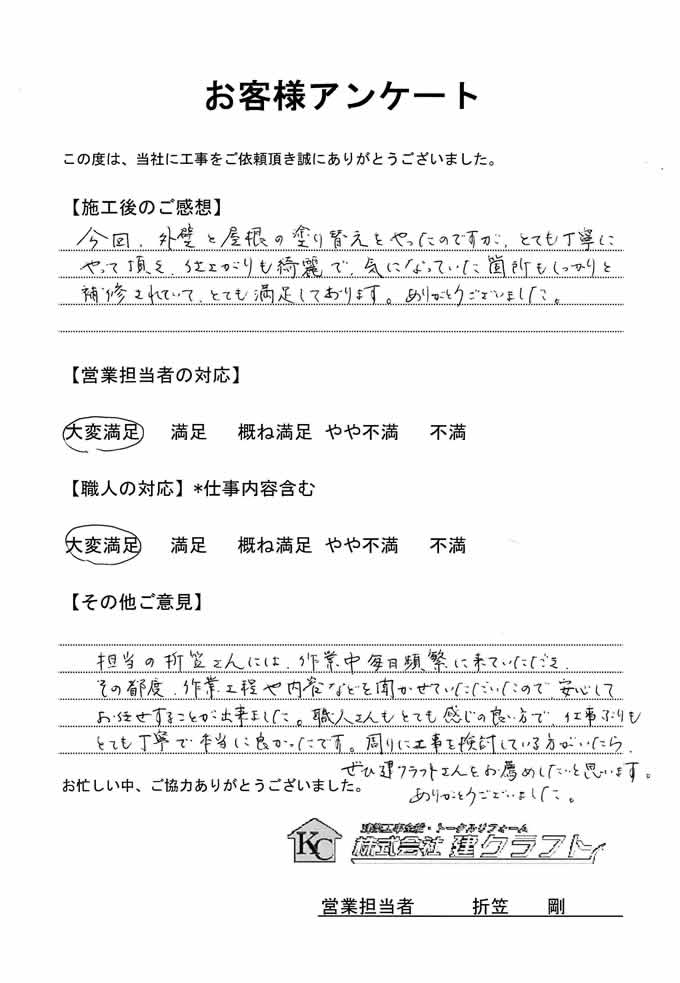 お客様アンケート
この度は、当社に工事をご依頼頂き誠にありがとうございました。
【施工後のご感想】
今回、外壁と屋根の塗り替えをやったのですが、とても丁寧に
やって頂き、仕上がりも綺麗で、気になっていた箇所もしっかりと
補修されていて、とても満足しております。ありがとうございました。
【営業担当者の対応】
大変満足 満足 概ね満足 やや不満 不満
【職人の対応】*仕事内容含む
大変満足 満足 概ね満足 やや不満 不満
【その他ご意見】
担当の折笠さんには、作業中毎日頻繁に来ていただき、
その都度、作業工程や内容などを聞かせていただいたので、安心して
お任せすることが出来ました。職人さんもとても感じの良い方で、仕事ぶりも
とても丁寧で本当に良かったです。周りに工事を検討している方がいたら、
ぜひ建クラフトさんをお薦めしたいと思います。
お忙しい中、ご協力ありがとうございました。
ありがとうございました。
KC
建築工事全般・トータルリフォーム
株式会社 建クラフト
営業担当者 折笠 剛